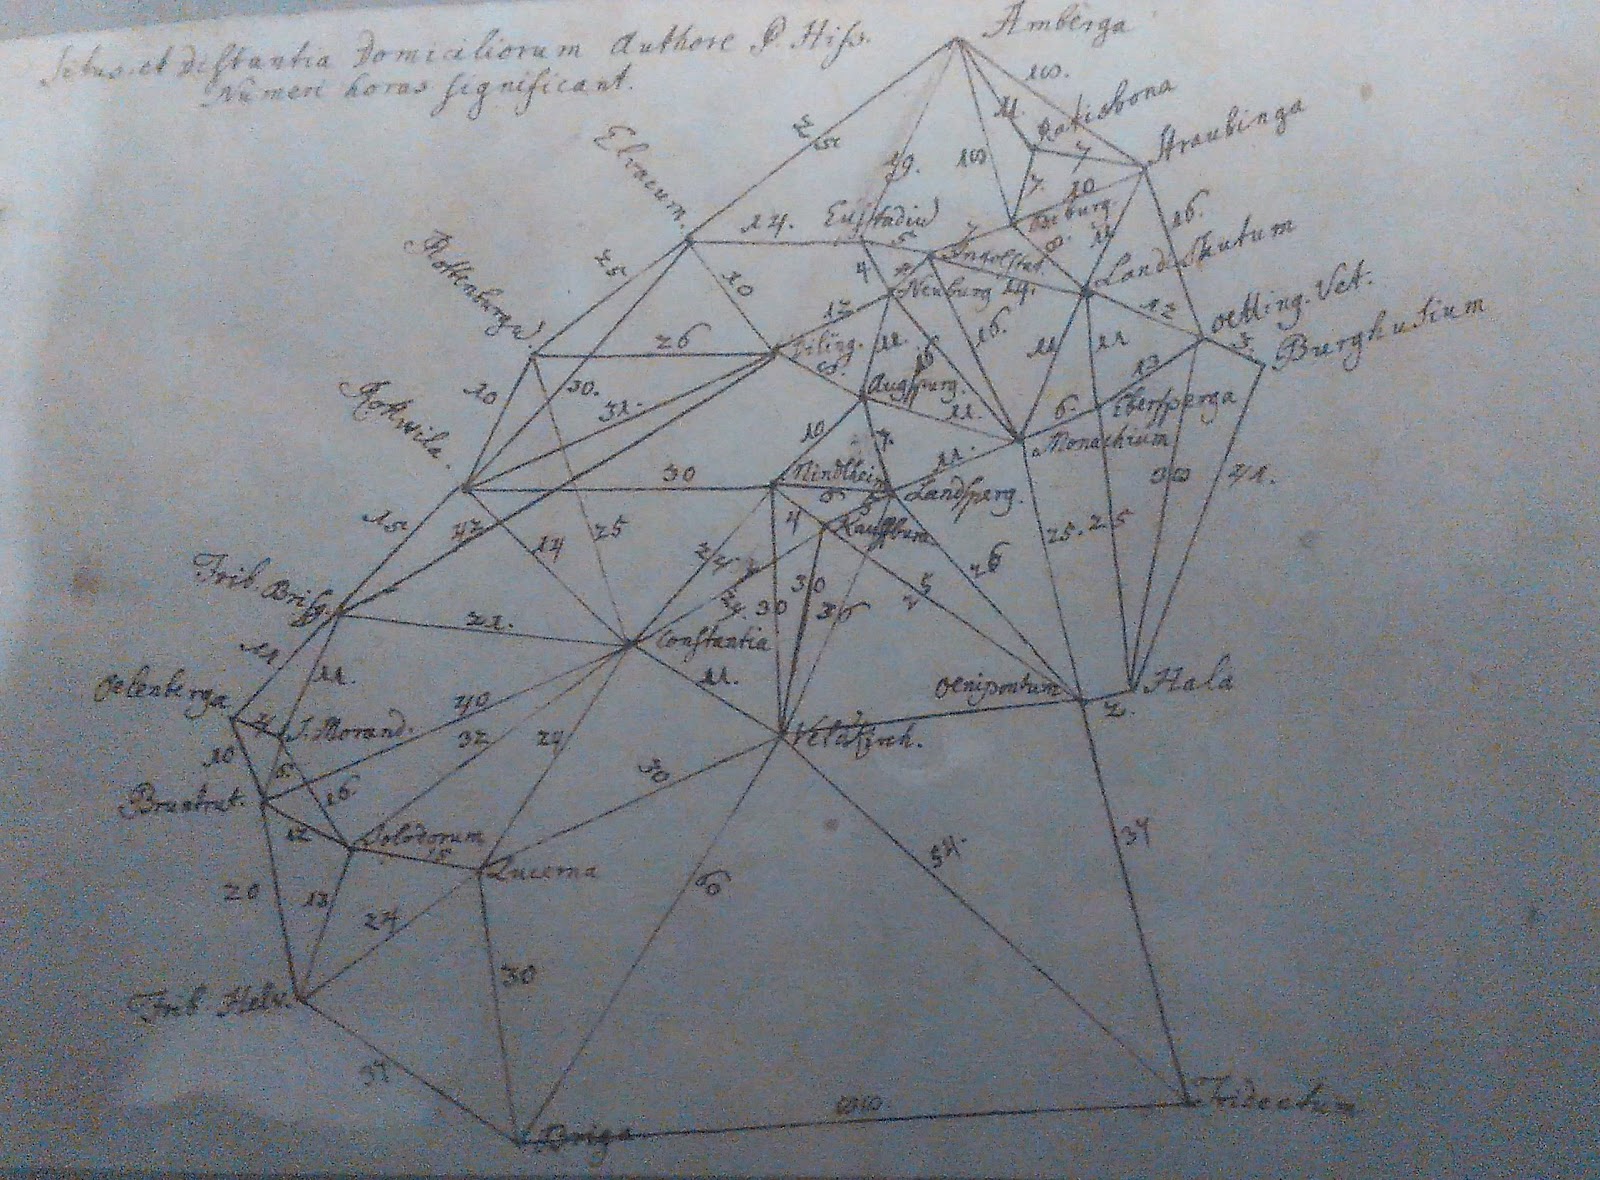 Situs et distantia Domiciliorum Authore P. Hiss.
Numeri horas significant.
Amberga
10.
Ratisbona
Straubinga
11.
7
25
19.
10
7.
10
16.
Elvacum.
14.
Eustadiu
5
7
8.
11
Landshutum
Rottenburga
25
10
4
Ingolstat.
Neuburg
14.
12
Oetting. Vet.
5.
Burghusium
26
12
Diling.
8.
11.
16
16.
11
11
13
Rotwila.
10
30.
31.
Augspurg.
11.
6.
Ebersperga
Monachium
10
7.
11.
30
Mindlheim
6
Landsperg.
30
41.
15
42
14
25
4
5
Kauffbura
22
24
30
30
36
25
26
25.
25
Frib. Brisg.
21.
Constantia
11.
Oenipontum
Hala
2.
Oelenberga
11
11.
4
S. Morand.
40
32
24
Veldkirch.
10
6.
16
30
Bruntrut.
12
Solodorum
Lucerna
20
13
24
54.
34
30
Frib. Helv.
34
Briga
Tridentum